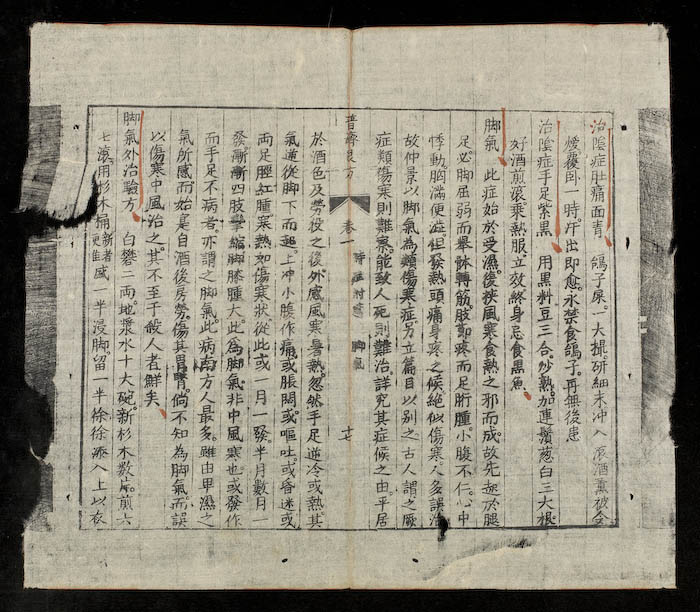 治陰症肚痛面青 鴿子屎一大撮。研細末冲入滾酒薰被令
煖覆卧一時。汗出即愈。永禁食鴿子。再無後患
治陰症手足紫黒 用黒料豆三合。炒熱。加連鬚葱白三大根
好酒煎滾乘熱服立效終身忌食黒魚
脚氣 此症始於受濕。復挾風寒食熱之邪而成。故先起於腿
足必脚屈弱而舉體轉筋肢節疼而足胻腫。小腹不仁。心中
悸動胸滿便澁。但發熱頭痛身疼之候。絶似傷寒。人多誤治
故仲景以脚氣為類傷寒症。另立篇目以別之。古人謂之厥
症類傷寒則難察。能致人死。則難治。詳究其症候之由。平居
普濟良方 卷一 脚氣 十七
於酒色及勞役之後。外感風寒暑熱。忽然手足逆冷。或熱其
氣從脚下而起。上冲小腹作痛。或脹悶。或嘔吐。或昏迷。或
兩足脛紅腫。寒熱如傷寒狀。從此或一月一發。半月數日一
發。漸漸四肢攣縮。脚膝腫大。此為脚氣。非中風寒也。或發作
而手足不病者。亦謂之脚氣。此病南方人最多。雖由卑濕之
氣所感。而始是自酒後房勞傷其胃腎。倘不知為脚氣。而誤
以傷寒中風治之。其不至于殺人者鮮矣
脚氣外治驗方 白礬二兩。地漿水十大碗。新杉木數片。煎六
七滾。用杉木桶新者更佳盛一半浸脚。留一半徐徐添入。上以衣